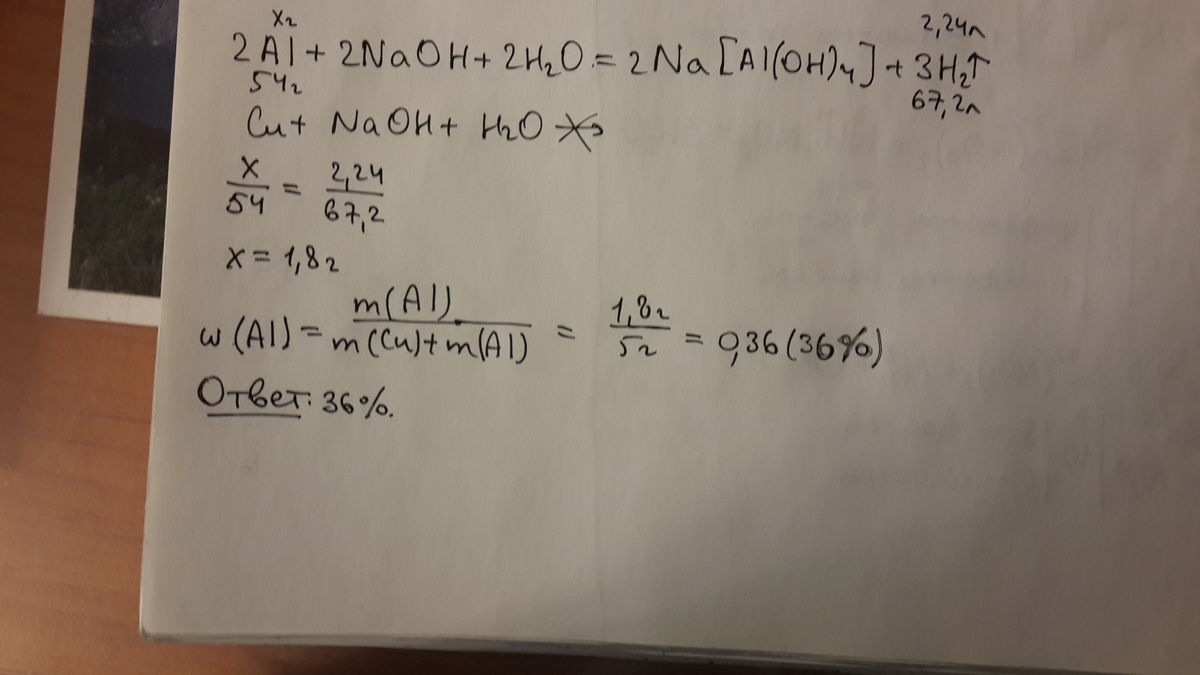 xг 2,24л
2Al + 2NaOH + 2H₂O = 2Na[Al(OH)₄] + 3H₂↑
54г 67,2л
Cu + NaOH + H₂O ↛
x/54 = 2,24/67,2
x = 1,8г
w(Al) = m(Al)/m(Cu)+m(Al) = 1,8г/5г = 0,36 (36%)
Ответ: 36%.